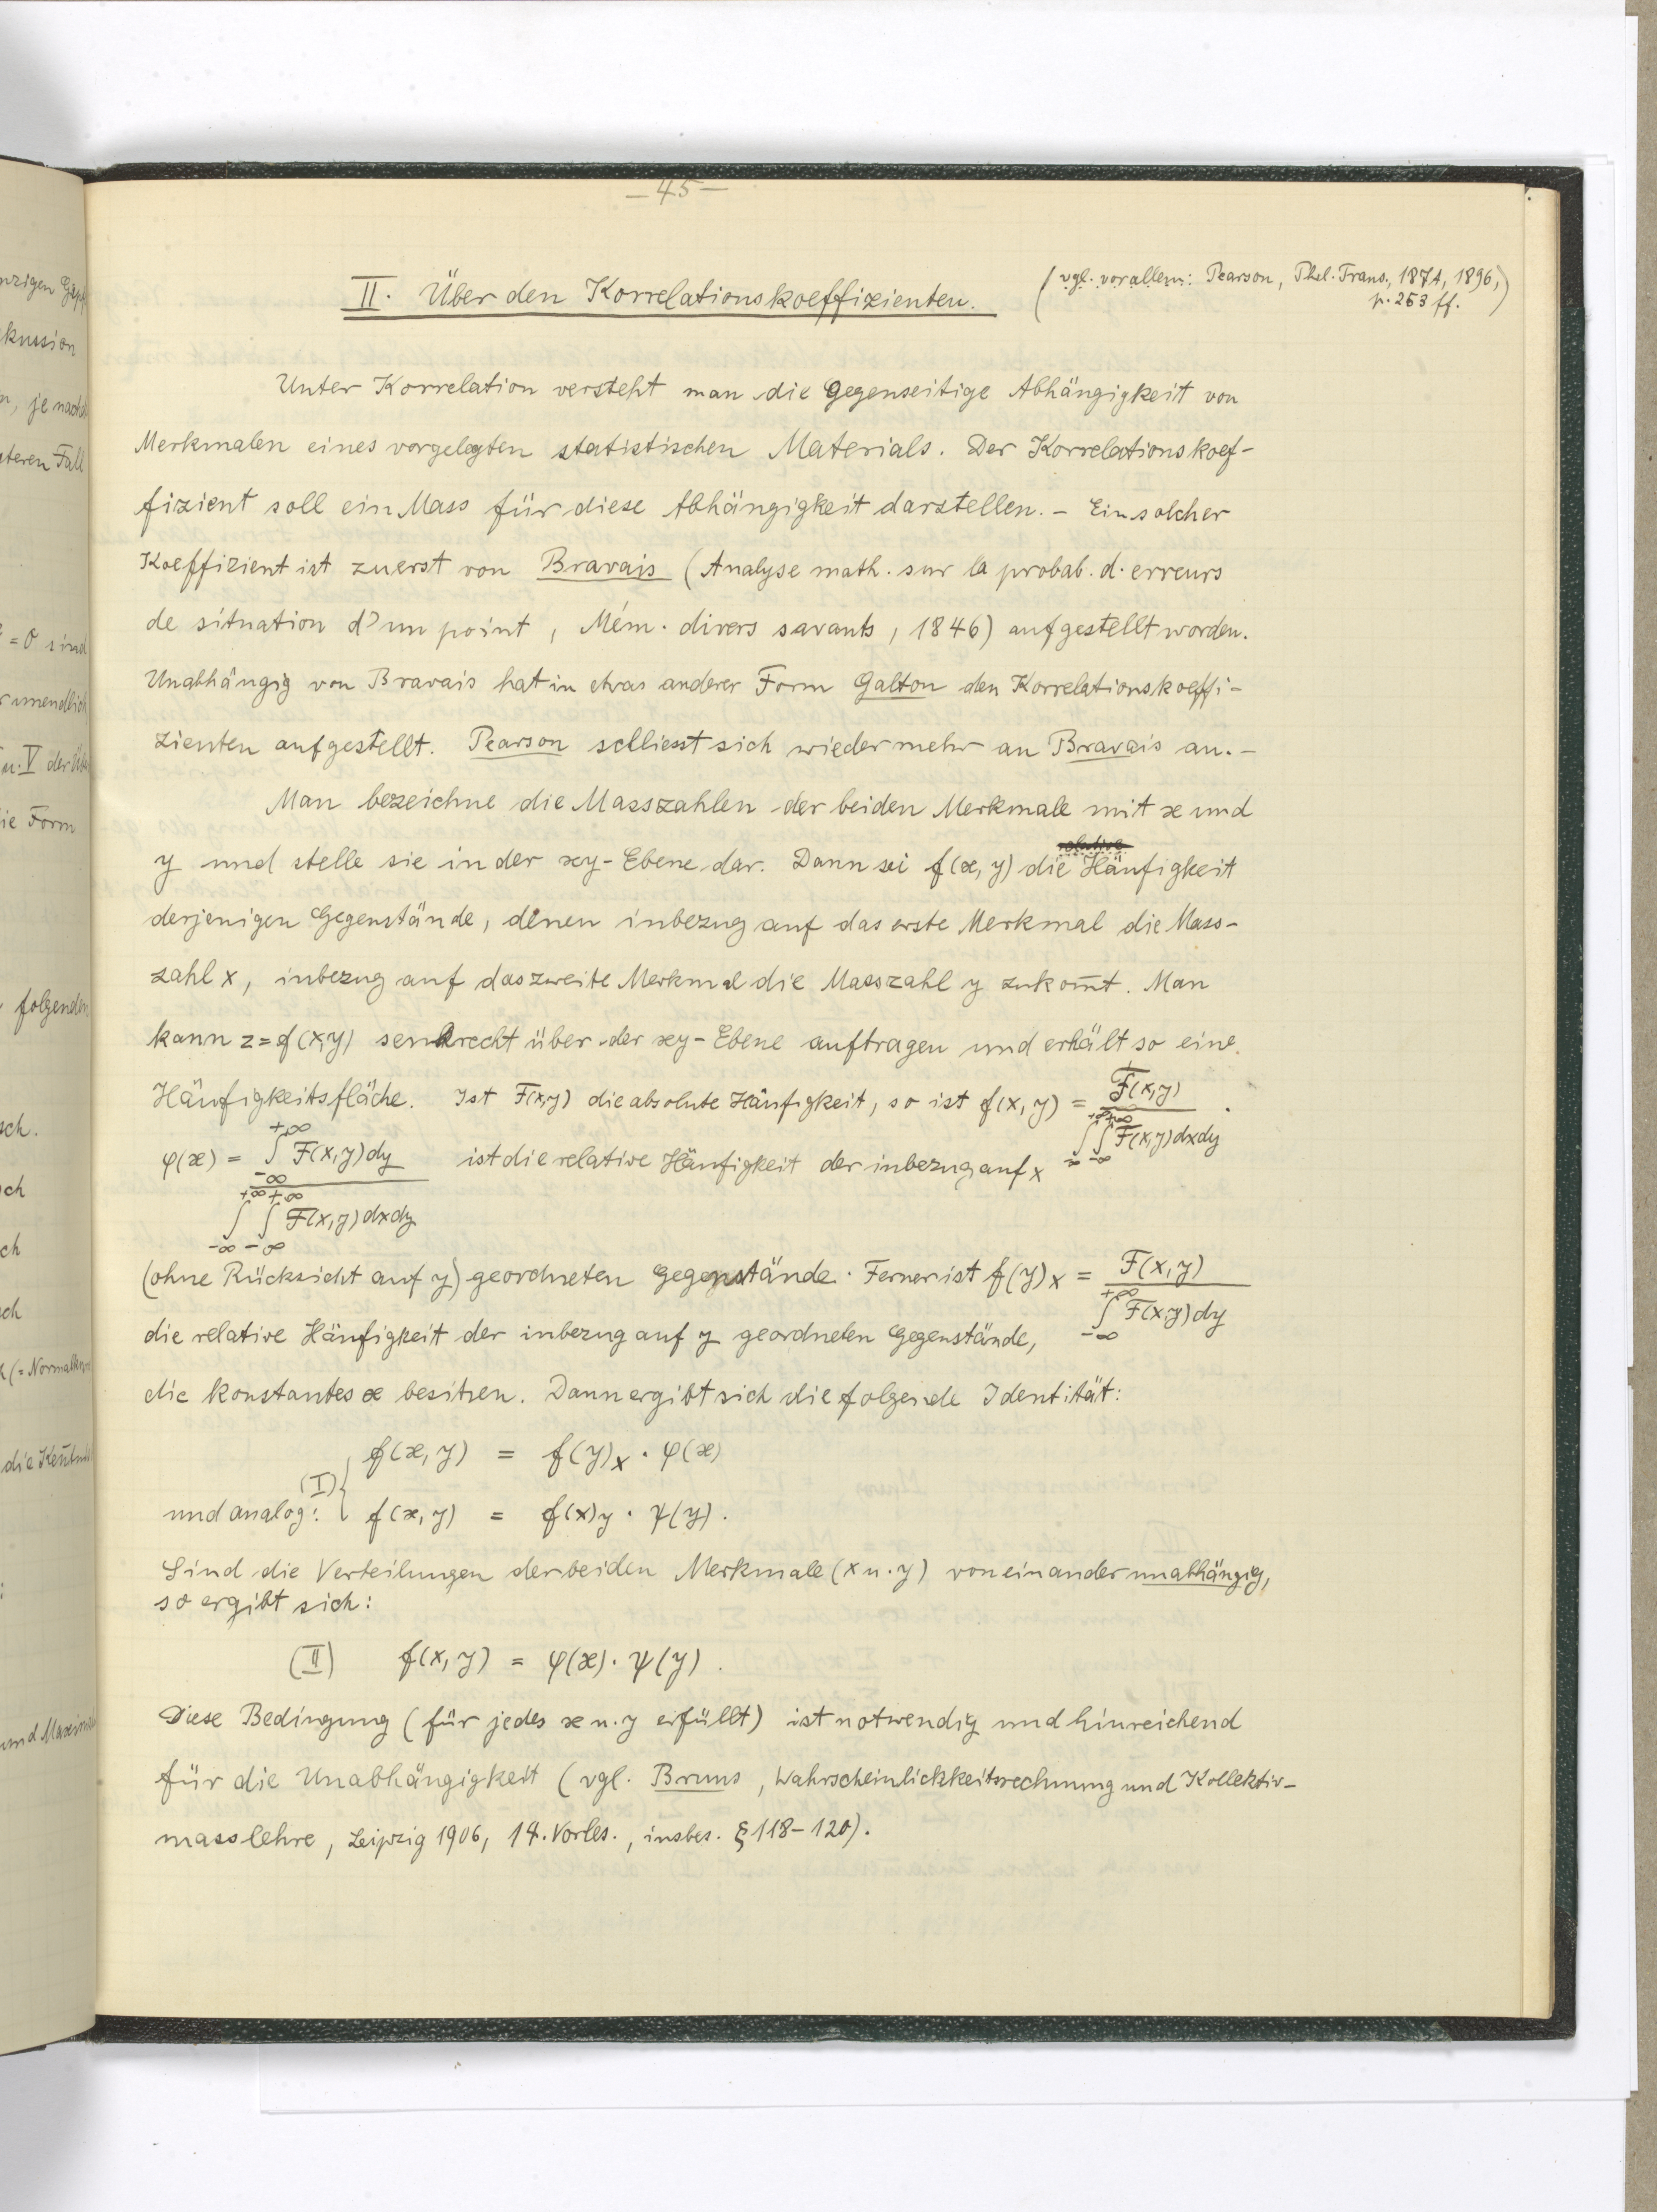 — 45 —
II. Über den Korrelationskoeffizienten.
(vgl. vor allem: Pearson, Phil. Trans., 187A, 1896,
p. 253 ff.)
Unter Korrelation versteht man die gegenseitige Abhängigkeit von
Merkmalen eines vorgelegten statistischen Materials. Der Korrelationskoef-
fizient soll ein Mass für diese Abhängigkeit darstellen. – Ein solcher
Koeffizient ist zuerst von Bravais (Analyse math. sur la probab. d. erreurs
de situation d'un point, Mém. divers savants, 1846) aufgestellt worden.
Unabhängig von Bravais hat in etwas anderer Form Galton den Korrelationskoeffi-
zienten aufgestellt. Pearson schliesst sich wieder mehr an Bravais an. –
Man bezeichne die Masszahlen der beiden Merkmale mit x und
y und stelle sie in der xy-Ebene dar. Dann sei f(x, y) die relative Häufigkeit
derjenigen Gegenstände, denen inbezug auf das erste Merkmal die Mass-
zahl x, inbezug auf das zweite Merkmal die Masszahl y zukom̄t. Man
kann z = f(x,y) senkrecht über der xy-Ebene auftragen und erhält so eine
Häufigkeitsfläche. Ist F(x,y) die absolute Häufigkeit, so ist f(x, y) = F(x,y) / ∫_{-∞}^{+∞} ∫_{-∞}^{+∞} F(x,y) dx dy .
φ(x) = ∫_{-∞}^{+∞} F(x,y) dy / ∫_{-∞}^{+∞} ∫_{-∞}^{+∞} F(x,y) dx dy ist die relative Häufigkeit der inbezug auf x
(ohne Rücksicht auf y) geordneten Gegenstände. Ferner ist f(y)x = F(x,y) / ∫_{-∞}^{+∞} F(x,y) dy
die relative Häufigkeit der inbezug auf y geordneten Gegenstände,
die konstantes x besitzen. Dann ergibt sich die folgende Identität:
f(x, y) = f(y)x · φ(x)
(I) {
und analog: f(x, y) = f(x)y · ψ(y).
Sind die Verteilungen der beiden Merkmale (x u. y) voneinander unabhängig,
so ergibt sich:
(II) f(x, y) = φ(x) · ψ(y).
Diese Bedingung (für jedes x u. y erfüllt) ist notwendig und hinreichend
für die Unabhängigkeit (vgl. Bruns, Wahrscheinlichkeitsrechnung und Kollektiv-
masslehre, Leipzig 1906, 14. Vorles., insbes. § 118–120).
kussion
je nach
teren Fall
= 0 sind
unendlich
u. V der
die Form
folgenden
sch.
ch
ch
ch
(= Normal
die
und